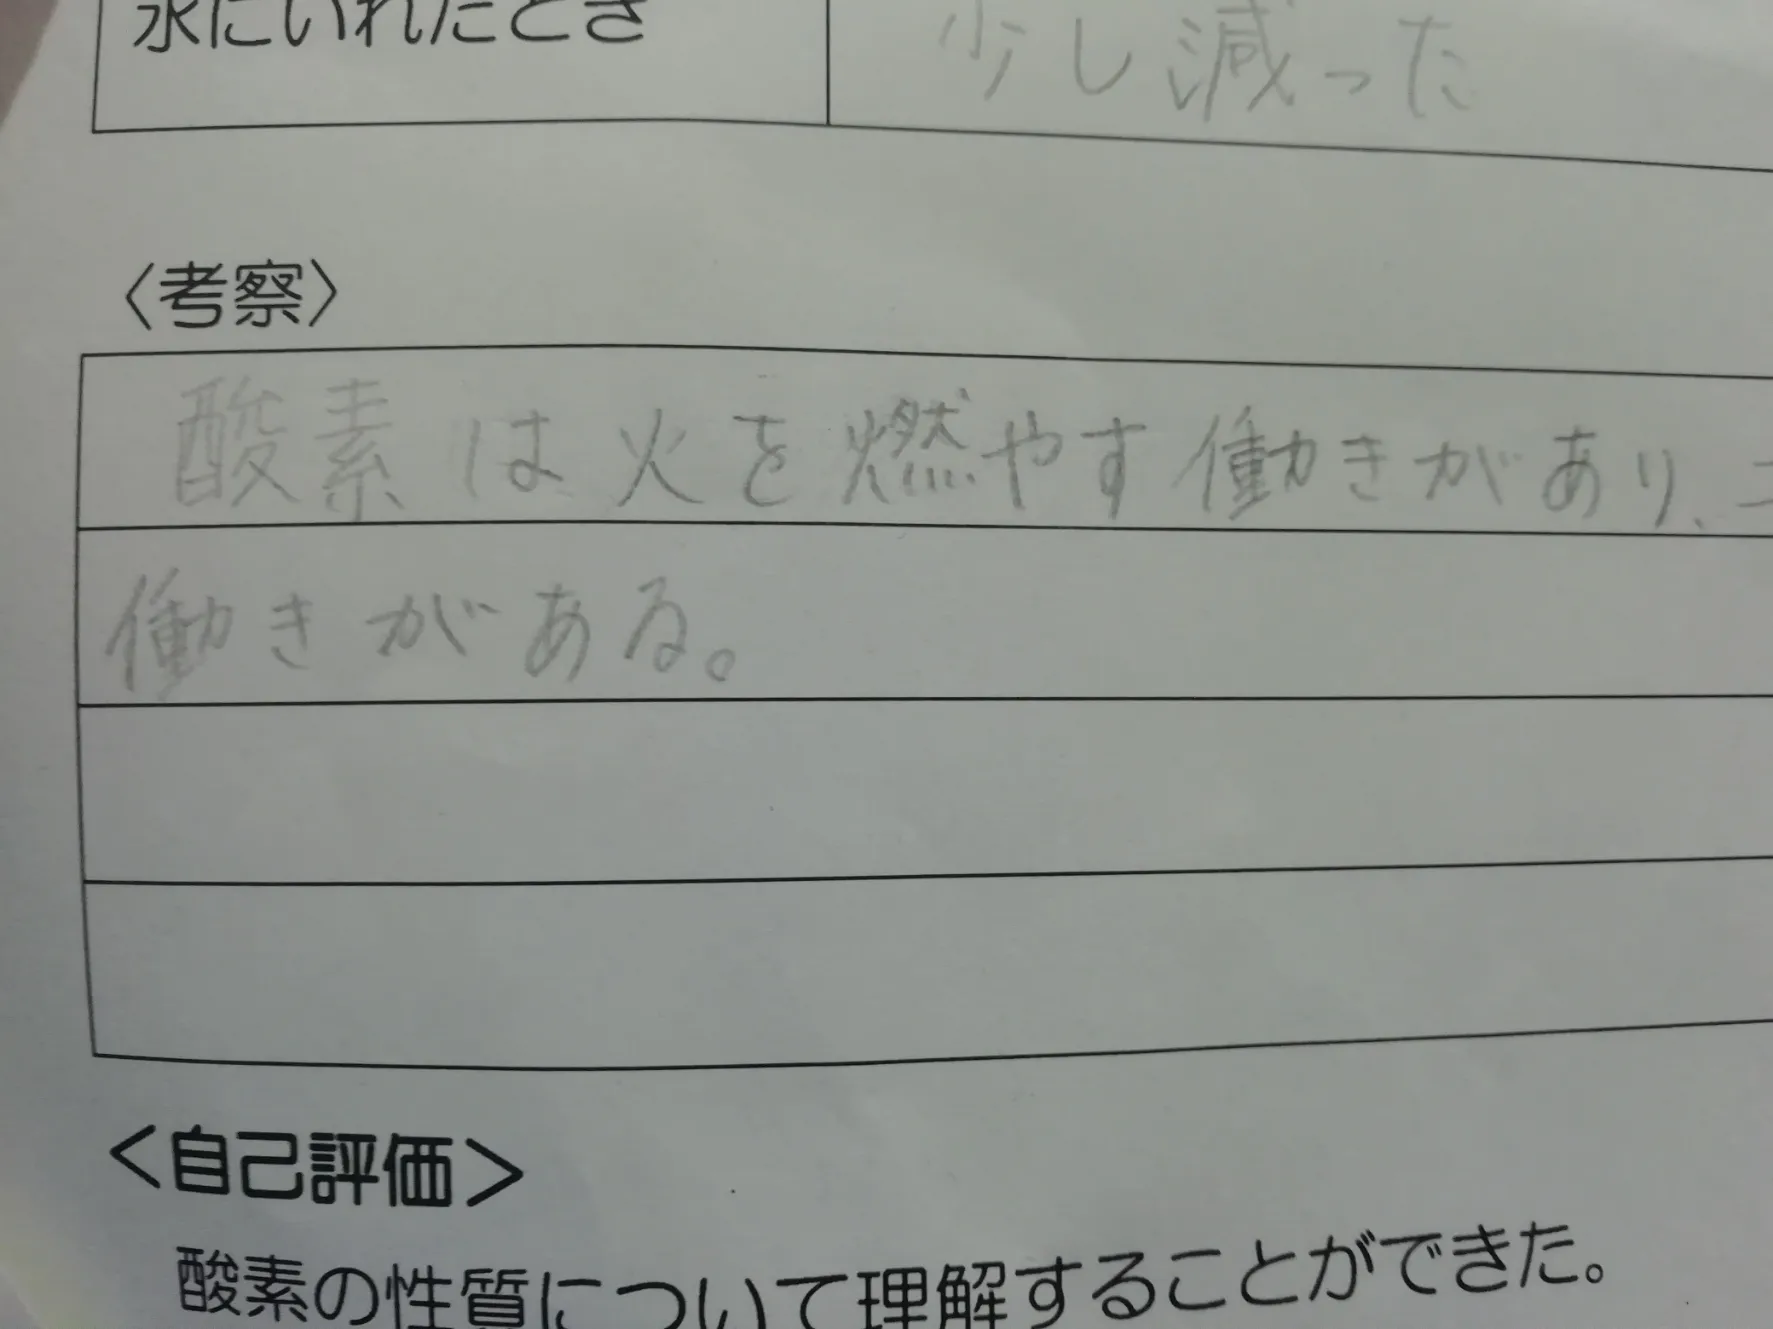 水にいれたとき
少し減った
〈考察〉
酸素は火を燃やす働きがあり、
働きがある。
＜自己評価＞
酸素の性質について理解することができた。